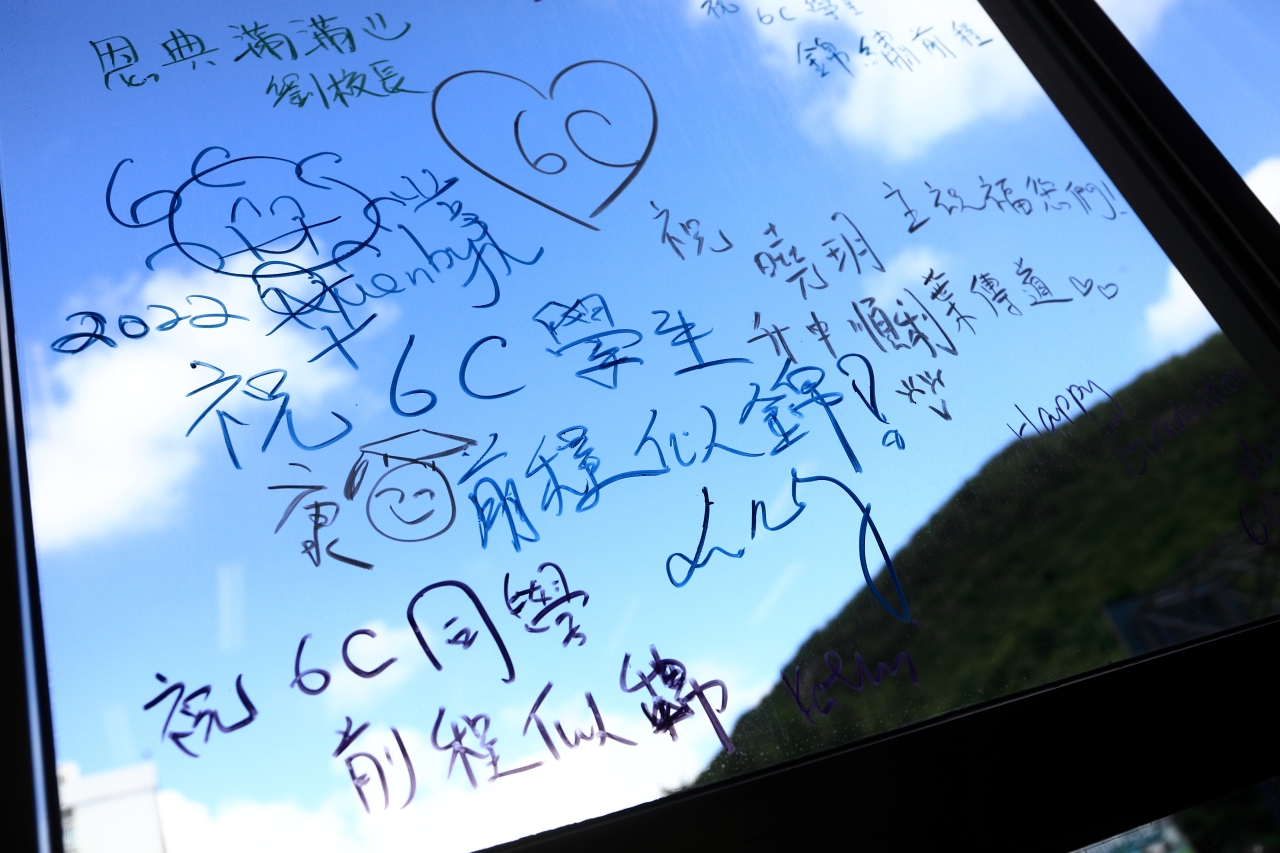 恩典滿滿心
劉校長
祝 6C學生
錦繡前程
6C
2022
祝 6C 學生
前程似錦!
祝 曉玥 主祝福您們!
升中順利
傳道
Happy
祝 6C 同學
前程似錦
Kathy